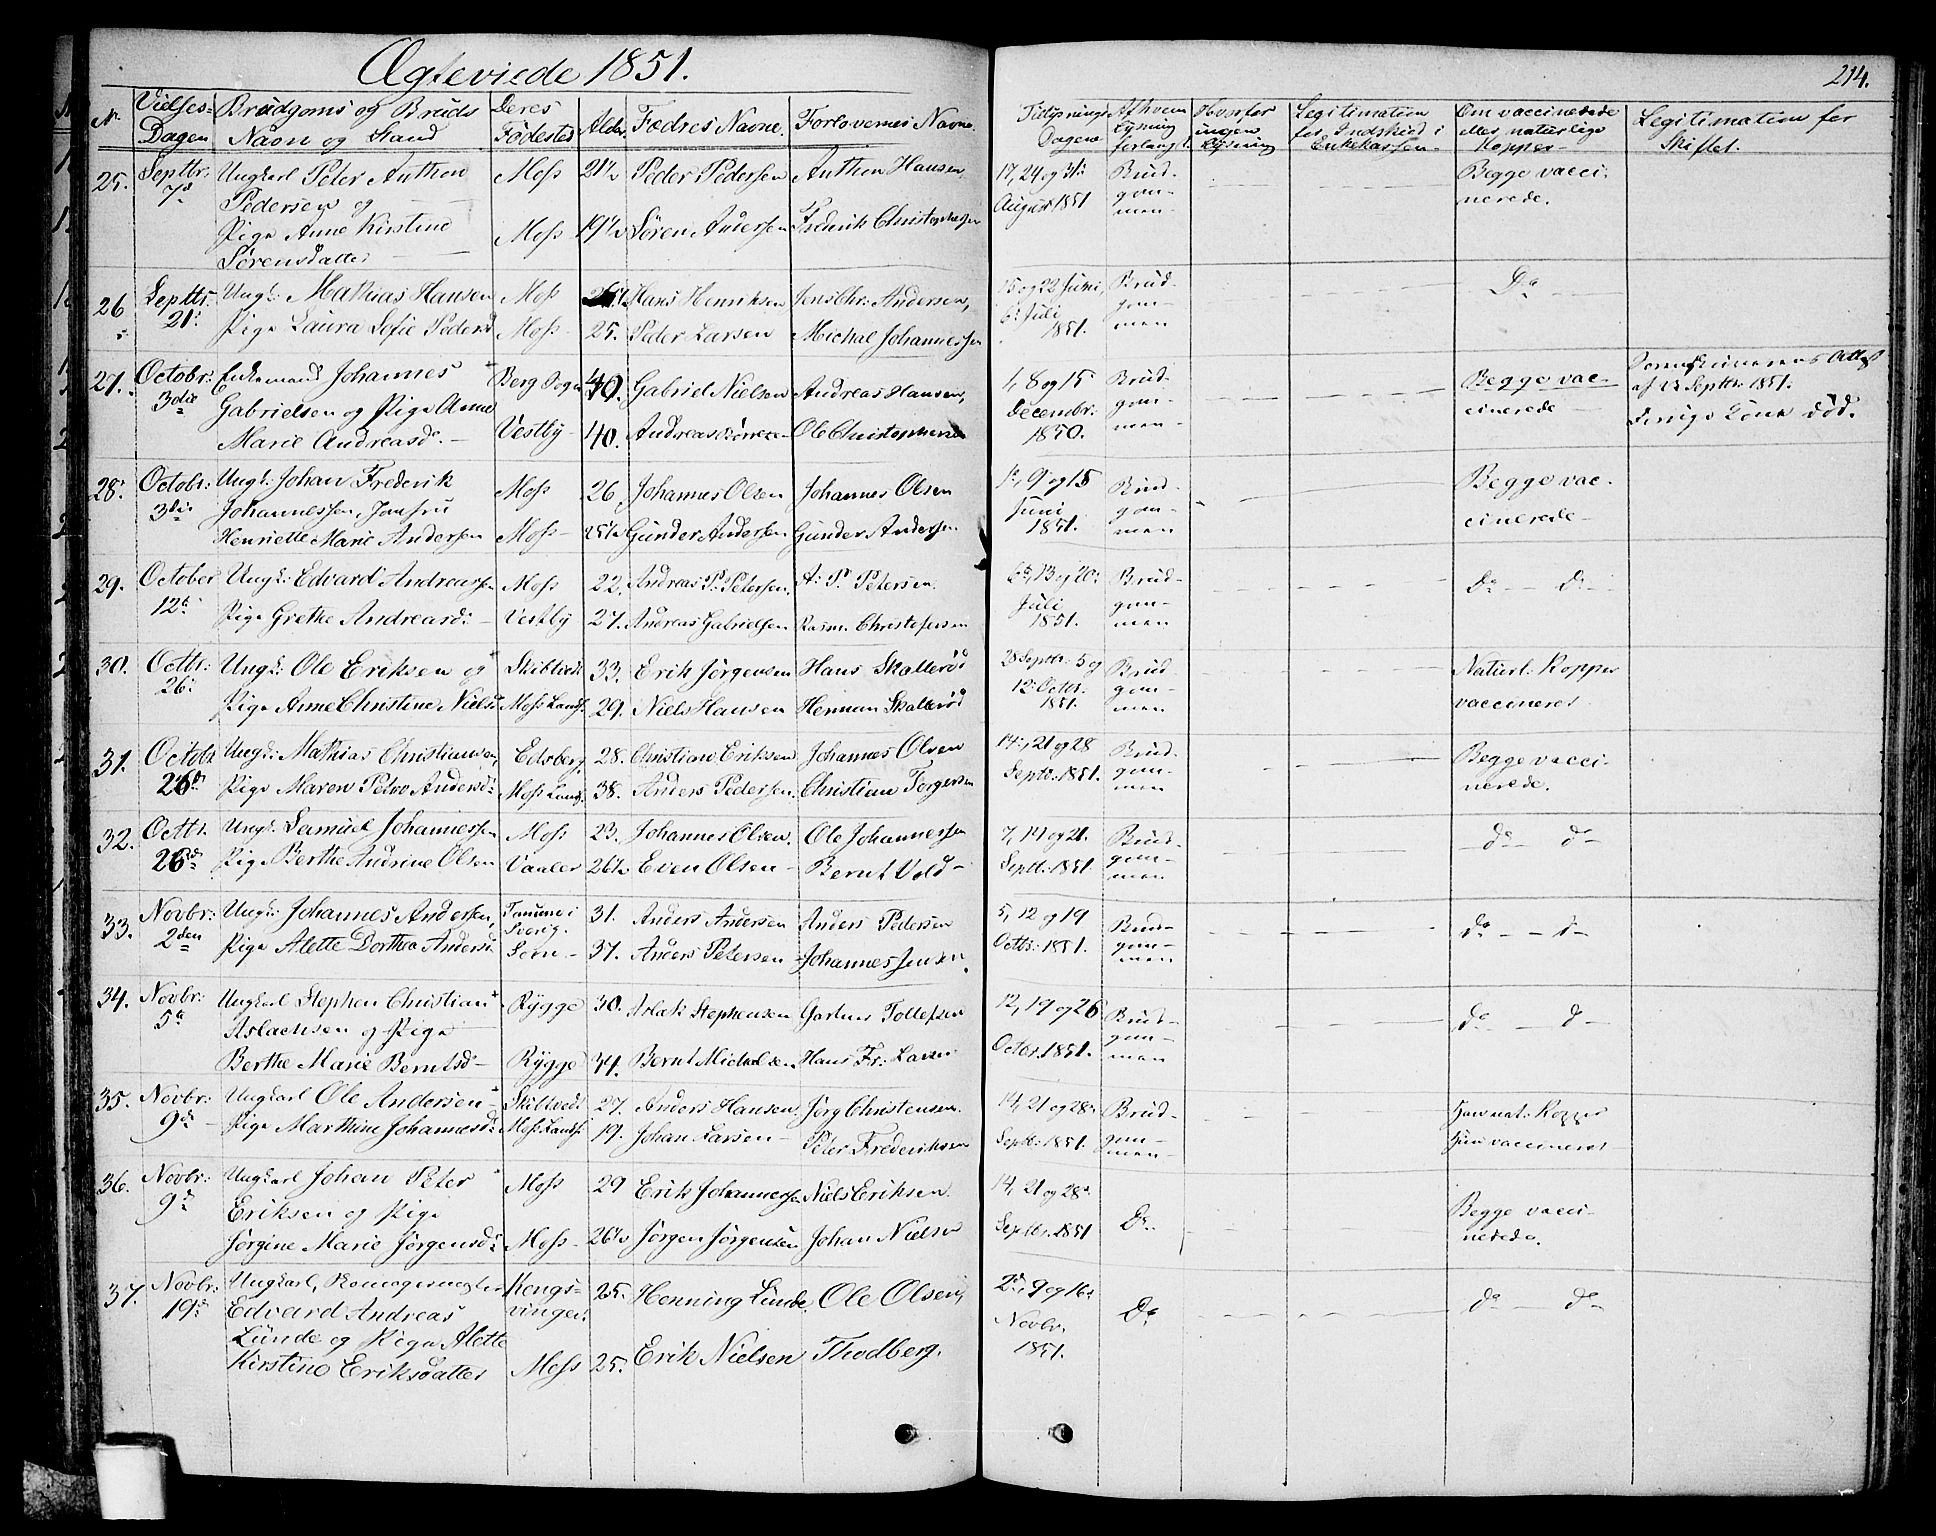 Ægteviede 1851.
214.
No
Vielses-Dagen
Brudgoms og Bruds Navn og Stand
Deres Fødested
Alder
Fædres Navne
Forlovernes Navne
Tillysnings Dagene
Af hvem Lysning forlangt
Hvorfor ingen Lysning
Legitimation for Indskud i Enkekassen
Om vaccinerede eller naturlige Kopper
Legitimation for Skiftet.
25. Septbr. 7d Ungkarl Peter Anthon Moss 21½ Peder Pedersen Anthon Hansen 17, 24 og 31 Brud- Begge vacci-
Pedersen og August 1851 gom- nerede.
Pige Anne Kirstine Moss 19½ Søren Andersen Frederik Christophersen men
Sørensdatter
26 Septbr. 21 Ungk: Mathias Hansen Moss Hans Henriksen Jens Chr: Andersen, 15 og 22 Juni, Brud- Do
Pige Laura Sofie Pedersd Moss 25. Peder Larsen Michal Johannessen 6 Juli 1851. gommen
27. Octobr: 3die Enkemand Johannes Berg Sogn 40. Gabriel Nielsen Andreas Hansen, 1, 8 og 15 Brud- Begge vac- af 13 Septbr 1851.
Gabrielsen og Pige Anne Decembr: gom- cinerede død.
Marie Andreasd. Vestby 40. Andreas Ole Christophersen 1850. men
28. Octobr: 3die Ungk: Johan Frederik Moss 26 Johannes Olsen Johannes Olsen 1, 9 og 15 Brud- Begge vac-
Johannessen, Jomfru Juni gom- cinerede
Henriette Marie Andersen Moss 25½ Gunder Andersen Gunder Andersen 1851. men
29. October 12 Ungk: Edvard Andreassen Moss 22. Andreas P. Petersen. A: P. Petersen. 6, 13 og 20 Brud- Do Do
Pige Grethe Andreasd: Vestby 27. Andreas Gabrielsen Rasm. Christofersen Juli 1851. gommen
30. Octbr: 26 Ungk: Ole Eriksen og Skibtvedt 33. Erik Jørgensen Hans Skallerød 28 Septbr: 5 og Brud- Naturl: Kopper
Pige Anne Christine Nielsd Moss Lands. 29. Niels Hansen Herman Skallerød 12 Octbr. 1851. gommen vaccineret
31. Octobr 26d Ungk: Mathias Christiansen, Edsberg 28. Christian Eriksen Johannes Olsen 14, 21 og 28 Brud- Begge vacci-
Pige Maren Petra Andersd: Moss Lands. 38. Anders Pedersen. Christian Torgersen Septbr. 1851. gommen nerede.
32. Octbr. 26d Ungk: Samuel Johannessen Moss 23. Johannes Olsen. Ole Johannessen 7, 14 og 21. Brud- do do
Pige Berthe Andrine Olsen Vaaler 26½ Even Olsen Bernt Vold Septbr: 1851. gommen
33. Novbr: 2den Ungk: Johannes Andersen, Tanum i Sverig. 31. Anders Andersen Anders Pedersen 5, 12 og 19 Brud- do do
Pige Alette Dorthea Andersd 37. Anders Petersen Johannes Jensen. Octbr: 1851. gommen
34. Novbr: 5 Ungkarl Stephen Christian Rygge 30. Aslak Stephensen Tollefsen 12, 19 og 26 Brud- do do
Aslachsen og Pige
Berthe Marie Berntsd Rygge 34. Bernt Michelsen. Hans Fr. Larsen Octbr. 1851. gommen
35. Novbr: 9d Ungkarl Ole Andersen Skibtvedt 27. Anders Hansen, Jørg Christensen. 14, 21 og 28 Brud- Han nat: Kopper
Pige Marthine Johannesd: Moss Lands. 19. Johan Larsen Peter Frederiksen Septbr: 1851. gommen Hun vaccineret
36. Novbr: 9d Ungkarl Johan Peter Moss 29 Erik Johannessen Niels Eriksen. 14, 21 og 28 Do. Begge vacci-
Eriksen og Pige
Jørgine Marie Jørgensd: Moss 26½ Jørgen Jørgensen Johan Nielsen Septbr. 1851 nerede.
37. Novbr: 19d Ungkarl, Kongs- 25. Henning Lunde. Ole Olsen, 2, 9 og 16 Do do do
Edvard Andreas vinger Novbr.
Lunde og Pige Alette 1851.
Kirstine Eriksdatter Moss 25. Erik Nielsen Thodberg.